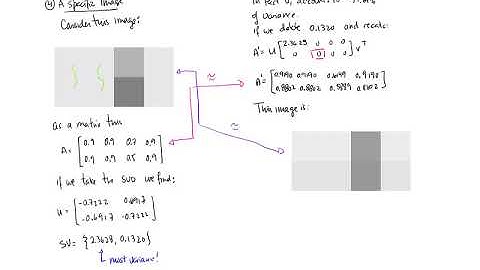 ④ A specific image
Consider this image:
as a matrix this
A = [0.9 0.9 0.7 0.9
0.9 0.9 0.5 0.9]
If we take the SVD we find:
U = [-0.7222 0.6917
-0.6917 -0.7222]
SV = {2.3628, 0.1320}
most variance!
of variance.
If we delete 0.1320 and recalc:
A' = U [2.3628 0 0 0
0 0 0 0] Vᵀ
≅
A' = [0.9190 0.9190 0.9190
0.8802 0.8802 0.8802]
≅
This image is: